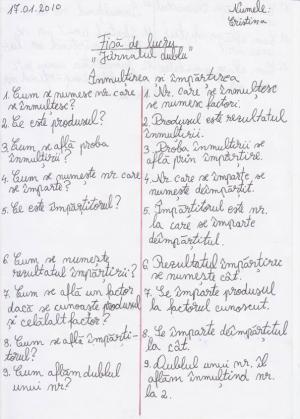 17.01.2010
Numele:
Cristina
Fișă de lucru
„Jurnalul dublu”
Înmulțirea și împărțirea
1. Cum se numesc nr. care
se înmulțesc?
2. Ce este produsul?
3. Cum se află proba
înmulțirii?
4. Cum se numește nr. care
se împarte?
5. Ce este împărțitorul?
6. Cum se numește
rezultatul împărțirii?
7. Cum se află un factor
dacă se cunoaște produsul
și celălalt factor?
8. Cum se află împărți-
torul?
9. Cum aflăm dublul
unui nr?
1. Nr. care se înmulțesc
se numesc factori.
2. Produsul este rezultatul
înmulțirii.
3. Proba înmulțirii se
află prin împărțire.
4. Nr. care se împarte se
numește deîmpărțit.
5. Împărțitorul este nr.
la care se împarte
deîmpărțitul.
6. Rezultatul împărțirii
se numește cât.
7. Se împarte produsul
la factorul cunoscut.
8. Se împarte deîmpărțitul
la cât.
9. Dublul unui nr. îl
aflăm înmulțind nr.
la 2.